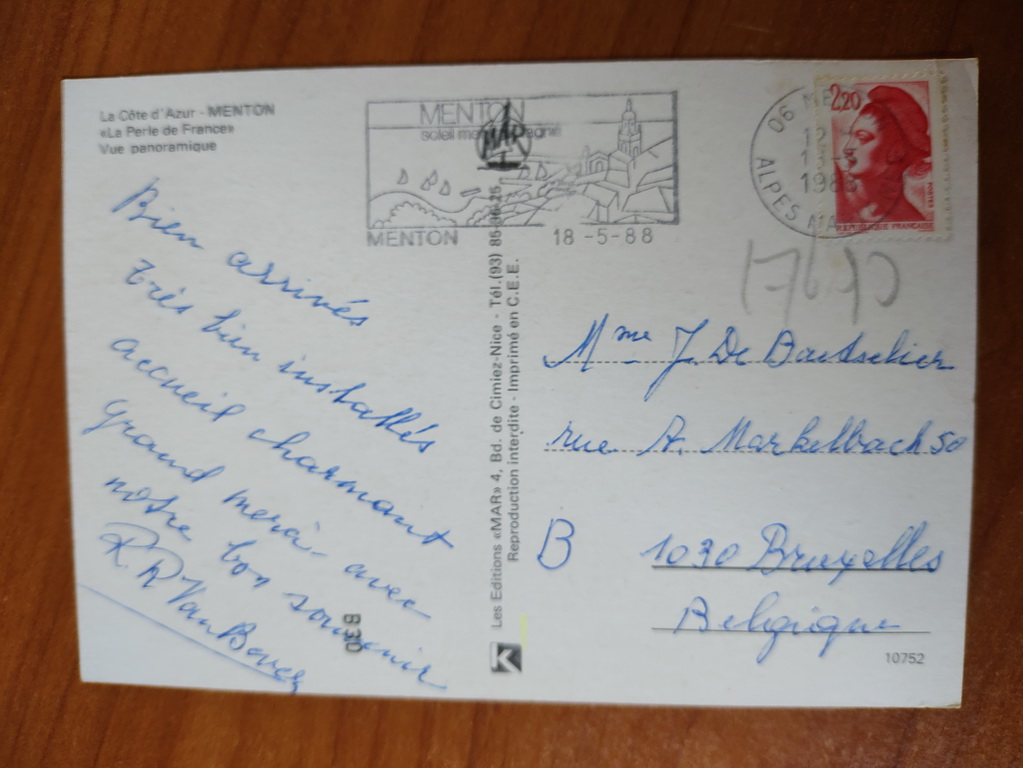 La Côte d'Azur - MENTON
«La Perle de France»
Vue panoramique
MENTON
soleil
MAR
MENTON 18-5-88
06
ALPES MA
2,20
REPUBLIQUE FRANÇAISE
Bien arrivés
très bien installés
accueil charmant
grand merci - avec
notre bon souvenir
R R Van Bever
B 30
Les Editions «MAR» 4, Bd. de Cimiez-Nice - Tél.(93) 85-36-25
Reproduction interdite - Imprimé en C.E.E.
Mme J. De Baetselier
rue A. Markelbach 50
B 1030 Bruxelles
Belgique
10752